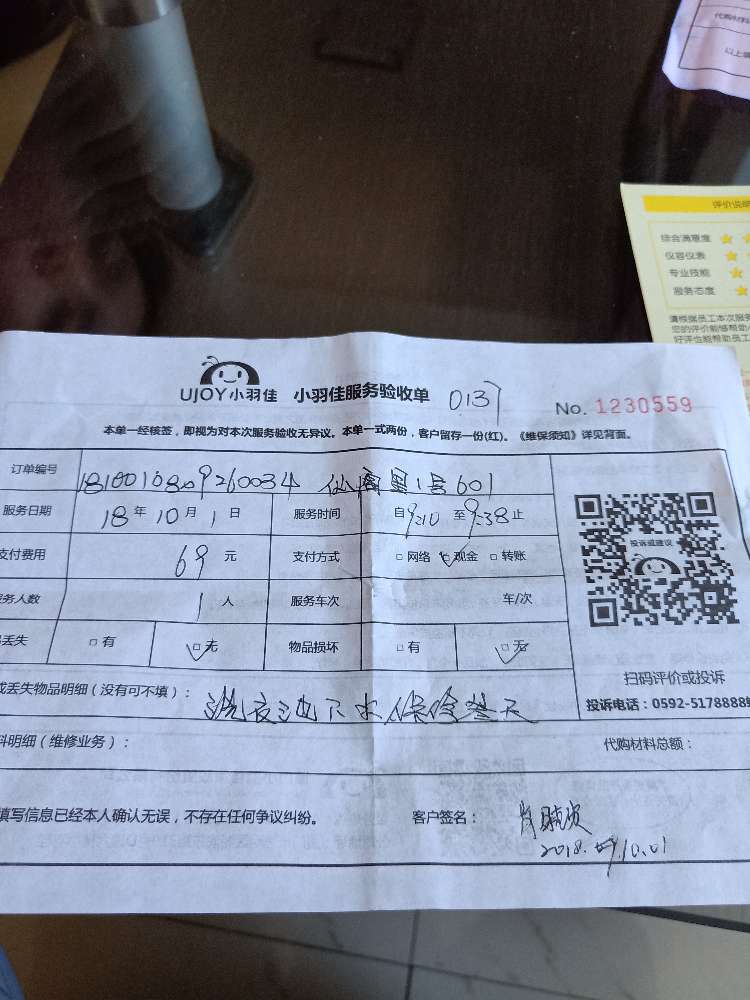 代购材料
以上填
评价说明
综合满意度
仪容仪表
专业技能
服务态度
请根据员工本次服务
您的评价能够帮助
好评也能帮助员工
UJOY小羽佳 小羽佳服务验收单 0137
No. 1230559
本单一经核签，即视为对本次服务验收无异议。本单一式两份，客户留存一份(红)。《维保须知》详见背面。
订单编号 仙阁里1号601
服务日期 18年10月1日 服务时间 自9:10至9:38止
支付费用 69元 支付方式 □网络 □现金 □转账
务人数 1人 服务车次 车/次
丢失 □有 □无 物品损坏 □有 □无
投诉或建议
扫码评价或投诉
投诉电话：0592-5178888
或丢失物品明细（没有可不填）： 洗衣池下水保修叁天
料明细（维修业务）： 代购材料总额：
填写信息已经本人确认无误，不存在任何争议纠纷。 客户签名：
2018.10.01